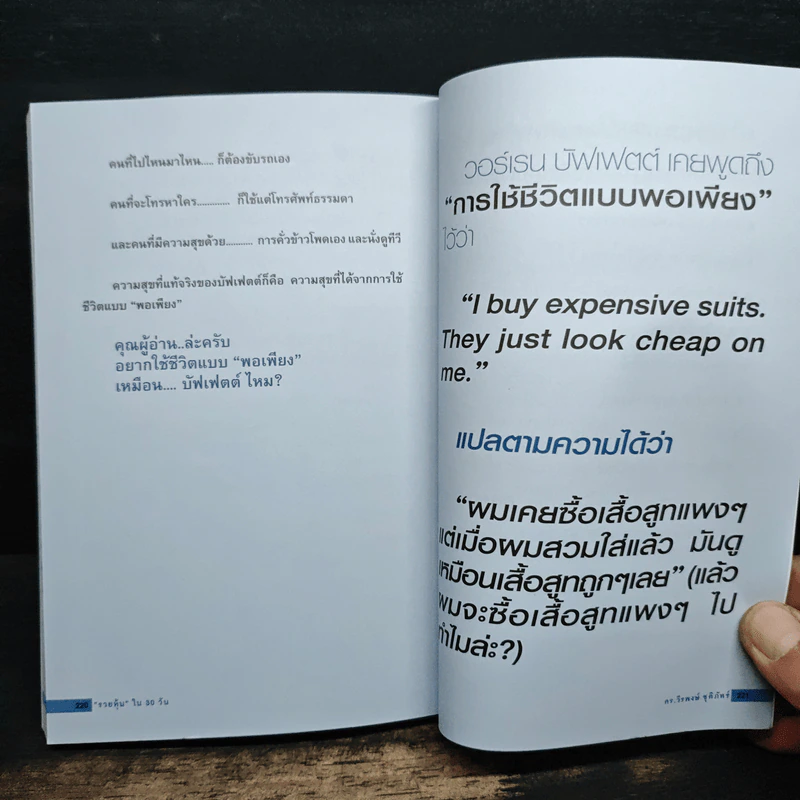 คนที่ไปไหนมาไหน..... ก็ต้องขับรถเอง
คนที่จะโทรหาใคร............. ก็ใช้แต่โทรศัพท์ธรรมดา
และคนที่มีความสุขด้วย........... การคั่วข้าวโพดเอง และนั่งดูทีวี
ความสุขที่แท้จริงของบัฟเฟตต์ก็คือ ความสุขที่ได้จากการใช้
ชีวิตแบบ “พอเพียง”
คุณผู้อ่าน..ล่ะครับ
อยากใช้ชีวิตแบบ “พอเพียง”
เหมือน.... บัฟเฟตต์ ไหม?
220 “รวยหุ้น” ใน 30 วัน
วอร์เรน บัฟเฟตต์ เคยพูดถึง
“การใช้ชีวิตแบบพอเพียง”
ไว้ว่า
“I buy expensive suits.
They just look cheap on
me.”
แปลตามความได้ว่า
“ผมเคยซื้อเสื้อสูทแพงๆ
แต่เมื่อผมสวมใส่แล้ว มันดู
เหมือนเสื้อสูทถูกๆเลย” (แล้ว
ผมจะซื้อเสื้อสูทแพงๆ ไป
ทำไมล่ะ?)
ดร.วีรพงษ์ ชุติภัทร์ 221